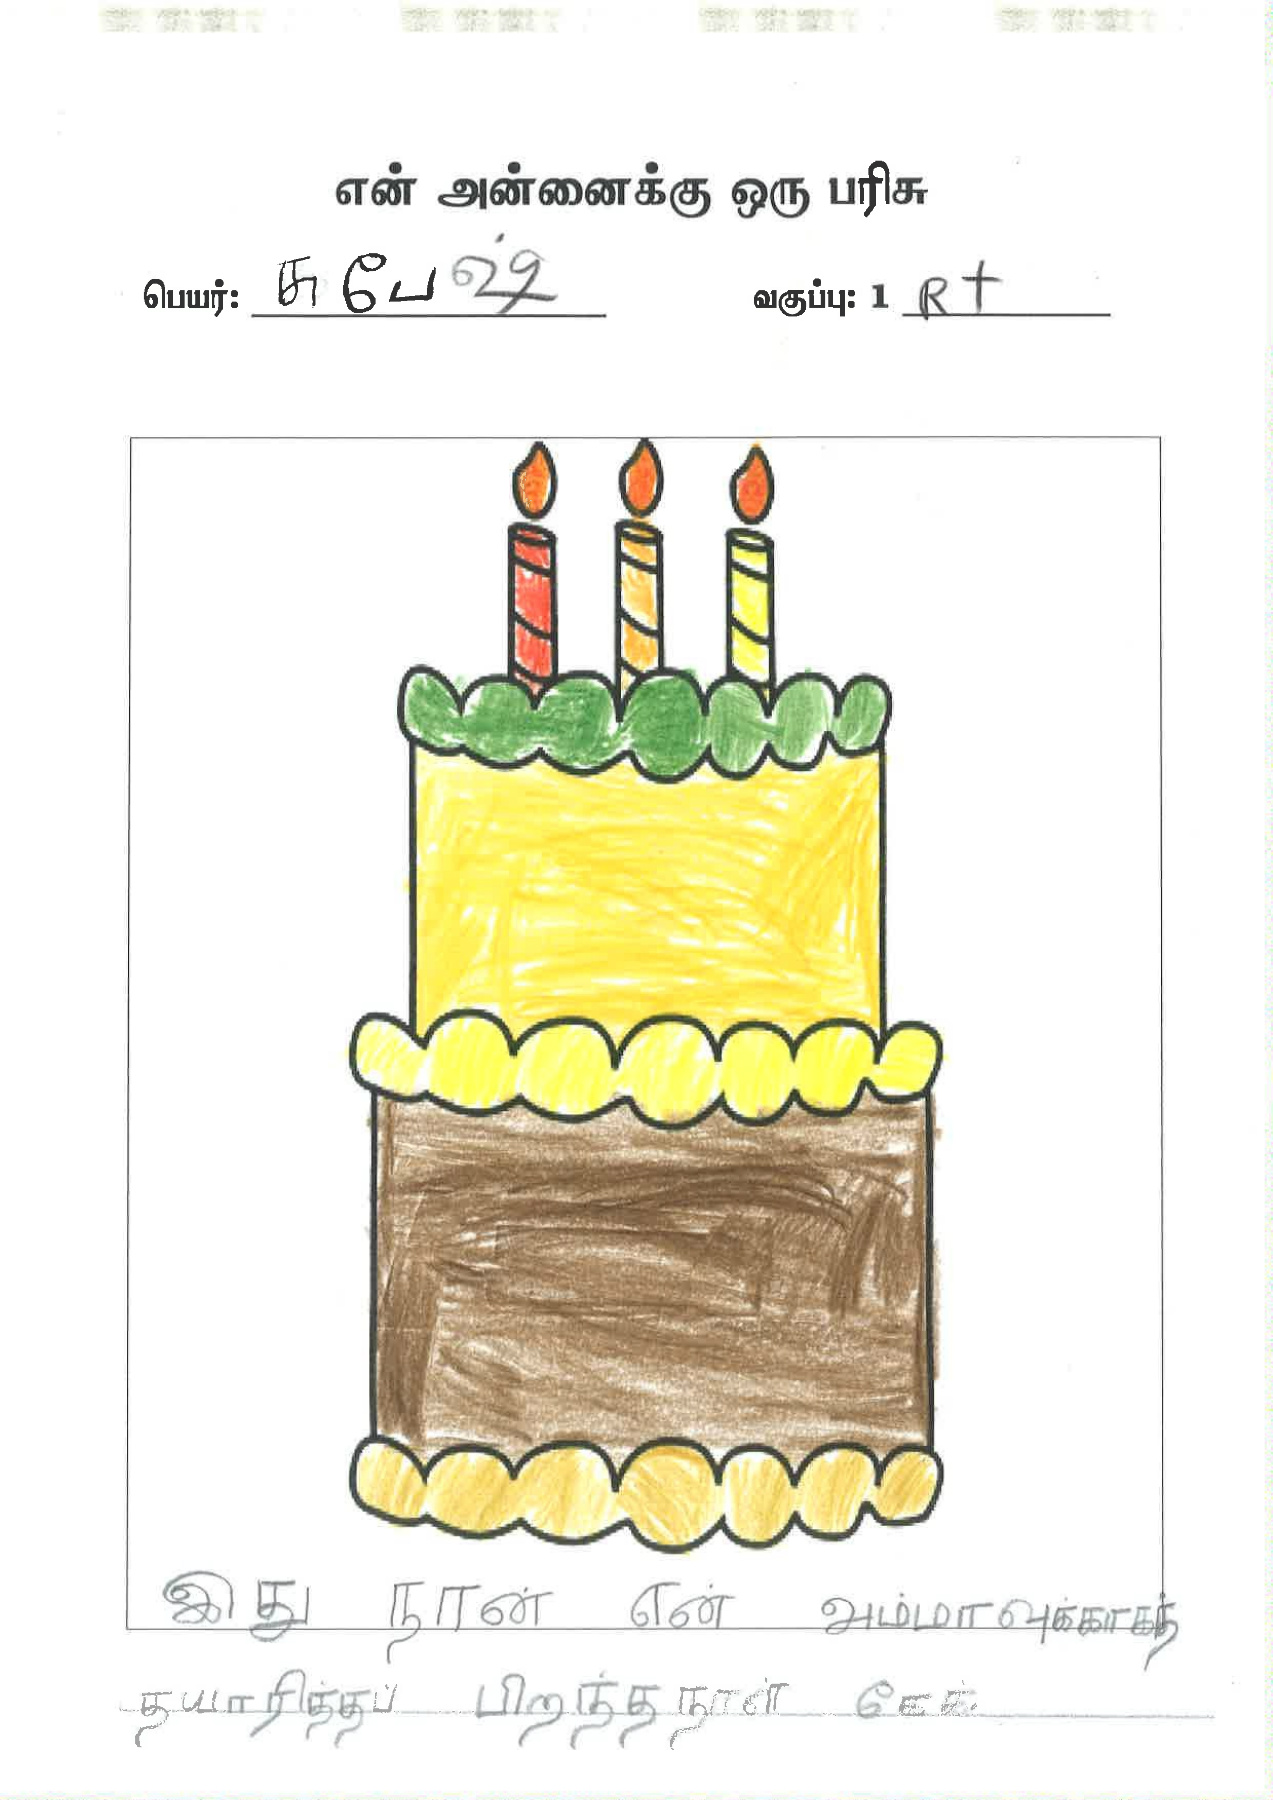 என் அன்னைக்கு ஒரு பரிசு
பெயர்: சுபேஷ் வகுப்பு: 1 RT
இது நான் என் அம்மாவுக்காகத்
தயாரித்தப் பிறந்தநாள் கேக்